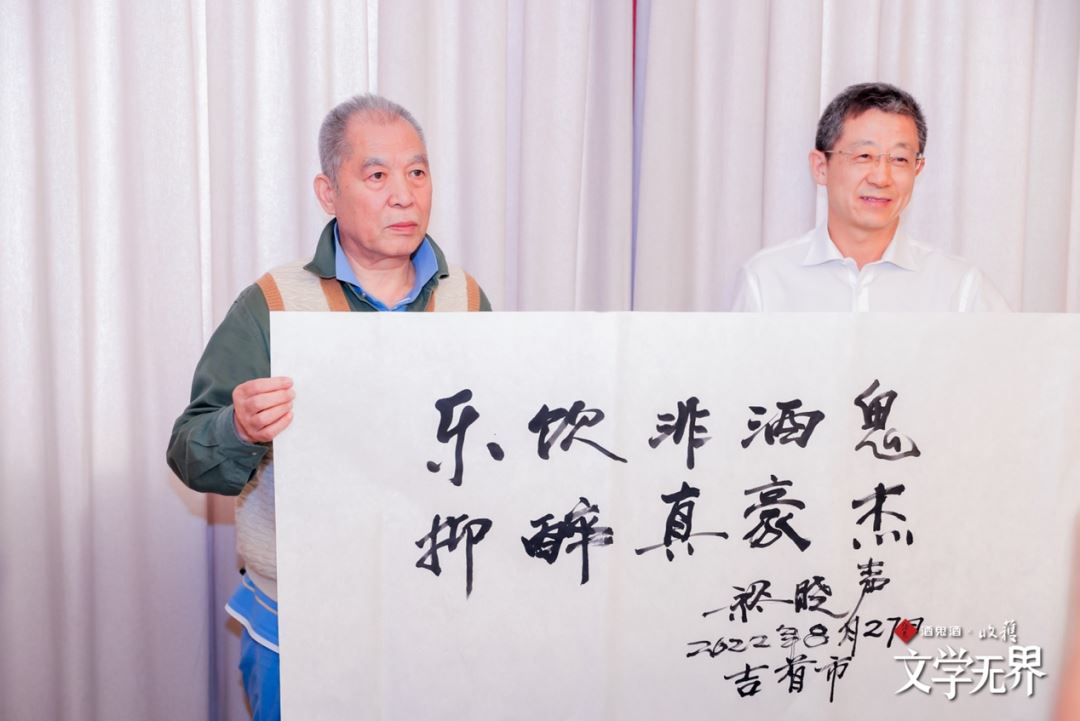 乐饮非酒鬼
抑醉真豪杰
梁晓声
2022年8月27日
吉首市
酒鬼酒 × 收获
文学无界